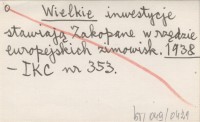 Wielkie inwestycje
stawiają Zakopane w rzędzie
europejskich zimowisk. 1938
– IKC nr 353.